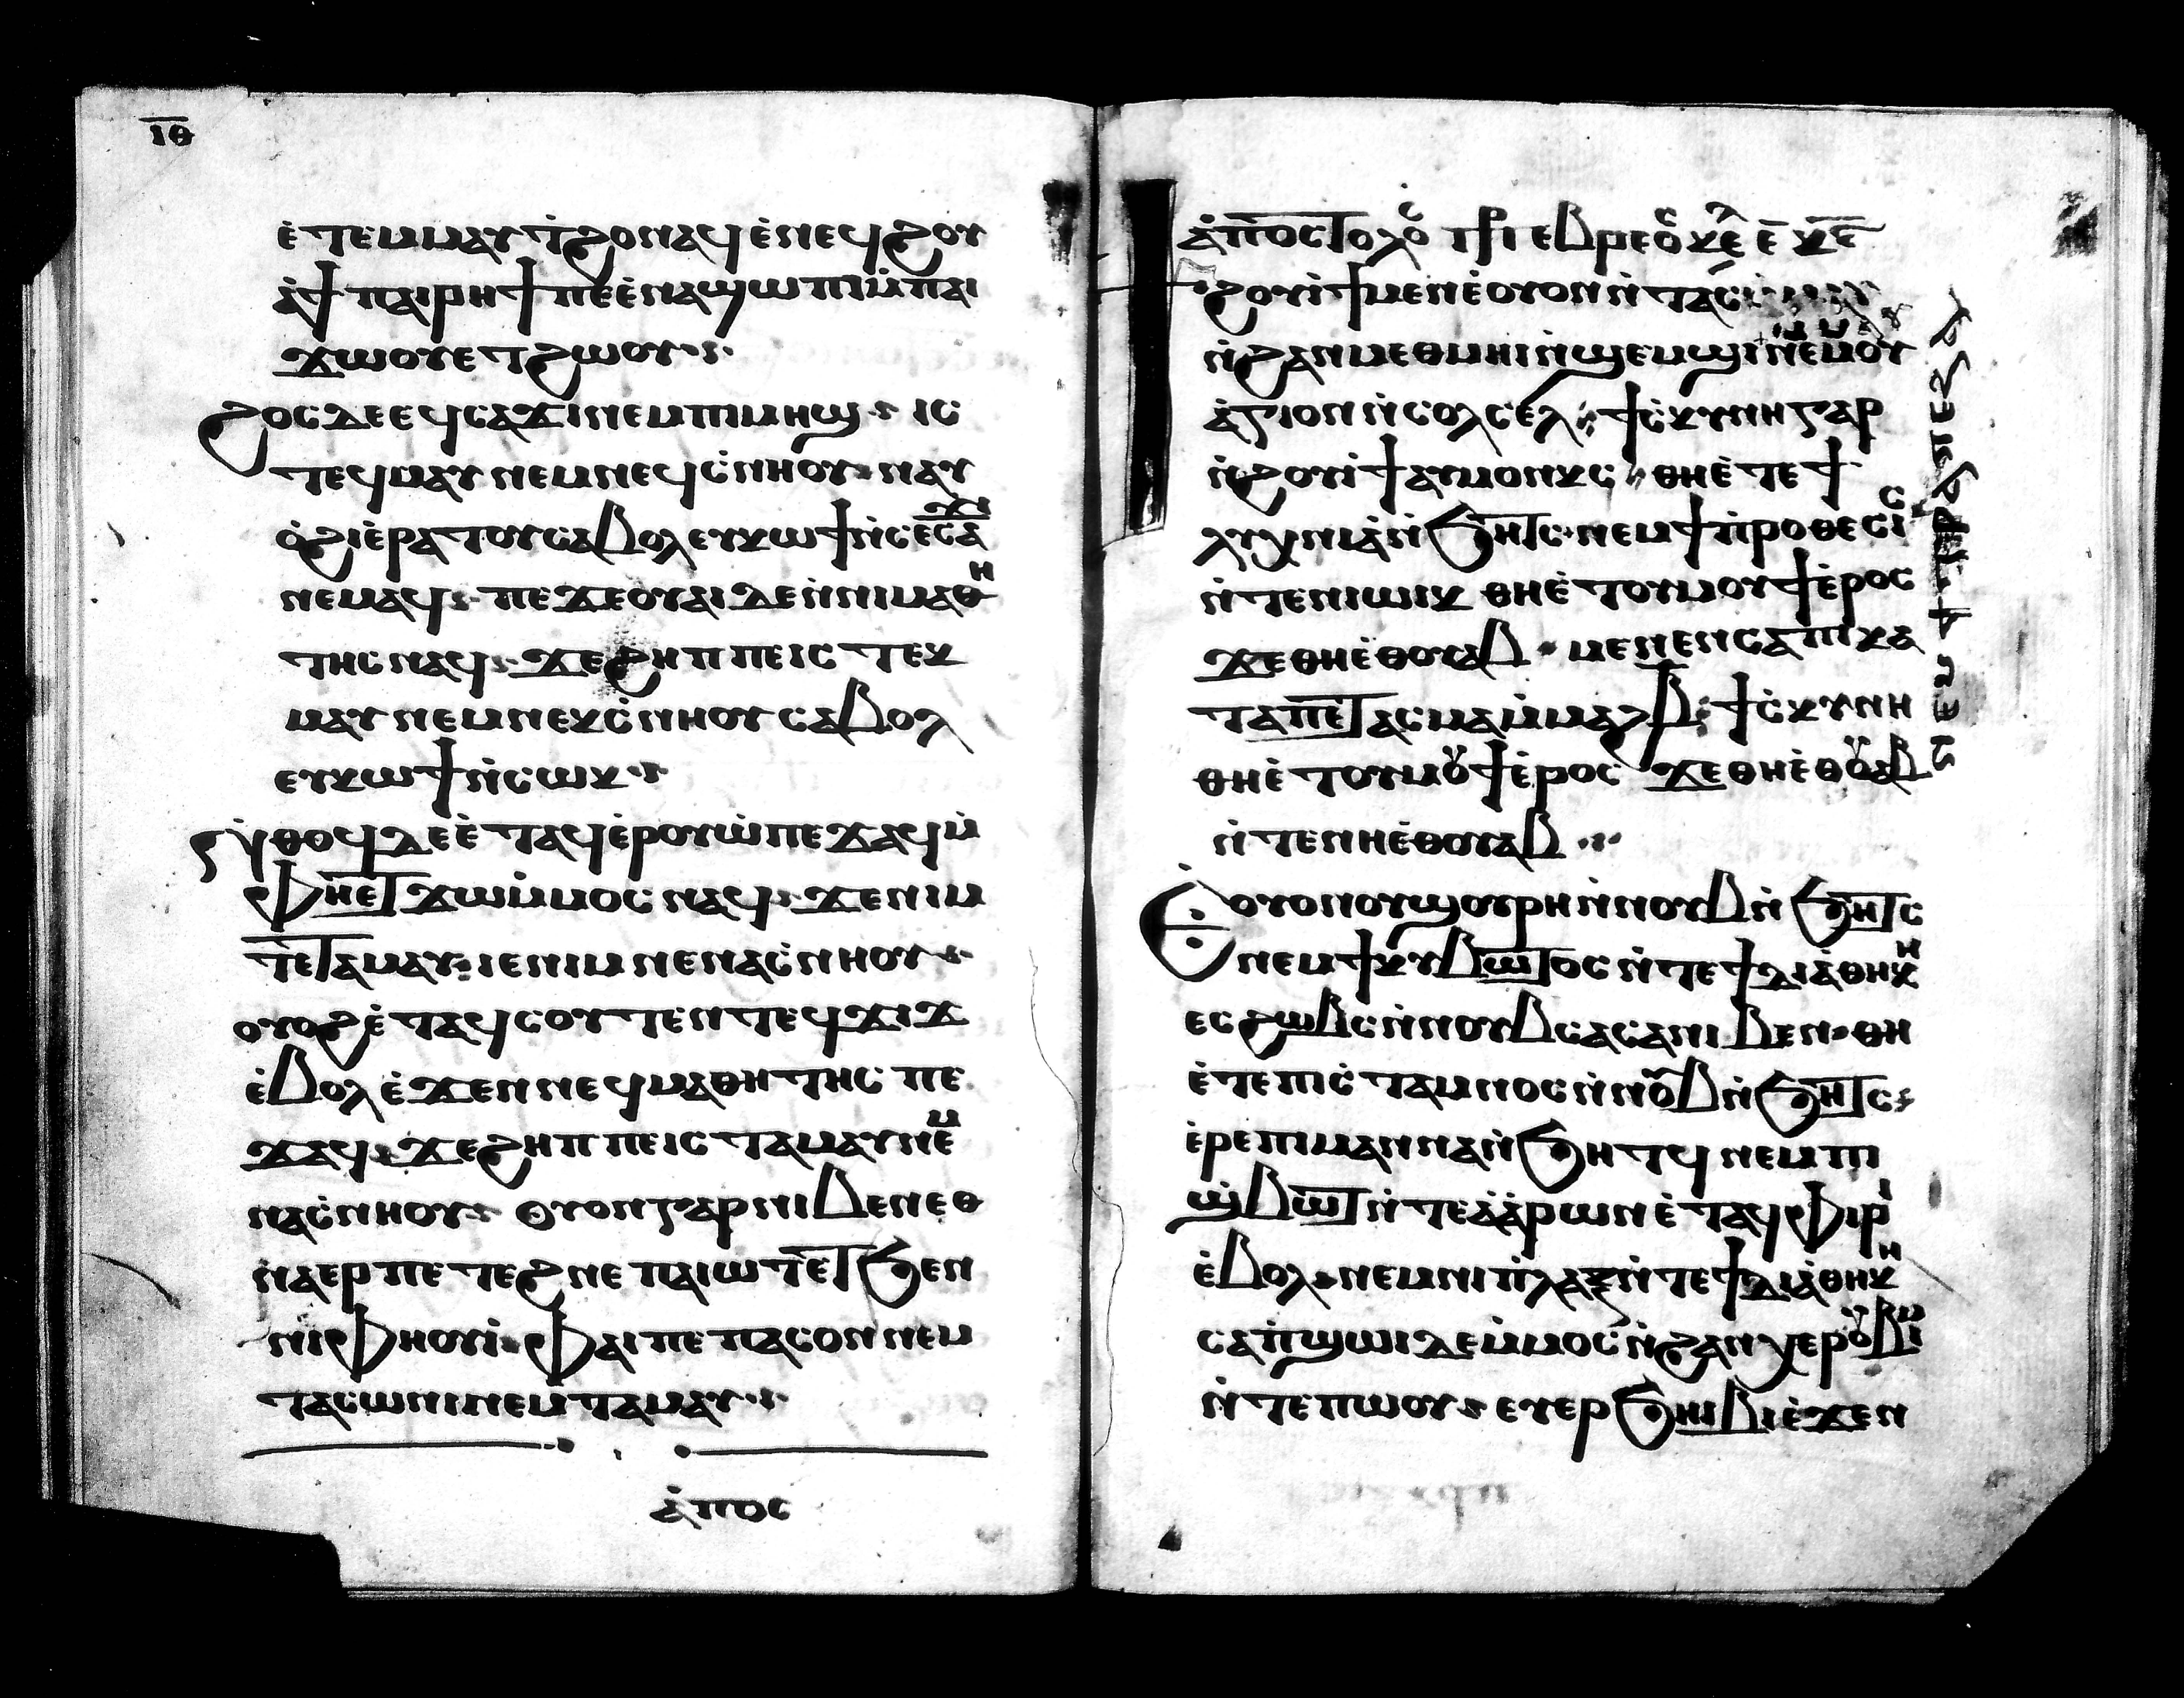 ⲓⲑ
ⲉ̀ⲧⲉⲙⲙⲁⲩ ϯϩⲟ ⲛⲁϥ ⲉ̀ⲛⲉϥϩⲟⲩ
ⲁ̀ϯ ⲡⲁⲓⲣⲏϯ ⲡⲉⲉ̀ⲛⲁϣⲱⲡⲓ ⲙ̀ⲡⲁⲓ
ϫⲱⲟⲩ ⲉⲧϩⲱⲟⲩ
ϩⲟⲥ ⲇⲉ ⲉϥⲥⲁϫⲓ ⲛⲉⲙ ⲡⲓⲙⲏϣ ⲓⲥ
ⲧⲉϥⲙⲁⲩ ⲛⲉⲙ ⲛⲉϥⲥ̀ⲛⲏⲟⲩ ⲛⲁⲩ
ⲟ̀ϩⲓ ⲉ̀ⲣⲁⲧⲟⲩ ⲥⲁⲃⲟⲗ ⲉⲩⲕⲱϯ ⲛ̀ⲥⲉⲥⲁϫⲓ
ⲛⲉⲙⲁϥ ⲡⲉϫⲉ ⲟⲩⲁⲓ ⲇⲉ ⲛ̀ⲛⲓⲙⲁⲑⲏ
ⲧⲏⲥ ⲛⲁϥ ϫⲉ ϩⲏⲡⲡⲉ ⲓⲥ ⲧⲉⲕ
ⲙⲁⲩ ⲛⲉⲙ ⲛⲉⲕⲥ̀ⲛⲏⲟⲩ ⲥⲁⲃⲟⲗ
ⲉⲩⲕⲱϯ ⲛ̀ⲥⲱⲕ
ⲛ̀ⲑⲟϥ ⲇⲉ ⲉ̀ⲧⲁϥⲉ̀ⲣⲟⲩⲱ̀ ⲡⲉϫⲁϥ ⲙ̀
ⲫⲏⲉⲧϫⲱ ⲙ̀ⲙⲟⲥ ⲛⲁϥ ϫⲉ ⲛⲓⲙ
ⲧⲉ ⲧⲁⲙⲁⲩ ⲓⲉ ⲛⲓⲙ ⲛⲉ ⲛⲁⲥ̀ⲛⲏⲟⲩ
ⲟⲩⲟϩ ⲉ̀ⲧⲁϥⲥⲟⲩⲧⲉⲛ ⲧⲉϥϫⲓϫ
ⲉ̀ⲃⲟⲗ ⲉ̀ϫⲉⲛ ⲛⲉϥⲙⲁⲑⲏⲧⲏⲥ ⲡⲉ
ϫⲁϥ ϫⲉ ϩⲏⲡⲡⲉ ⲓⲥ ⲧⲁⲙⲁⲩ ⲛⲉⲙ
ⲛⲁⲥ̀ⲛⲏⲟⲩ ⲟⲩⲟⲛ ⲅⲁⲣ ⲛⲓⲃⲉⲛ ⲉⲑ
ⲛⲁⲉⲣ ⲡⲉⲧⲉϩⲛⲉ ⲡⲁⲓⲱⲧ ⲉⲧϧⲉⲛ
ⲛⲓⲫⲏⲟⲩⲓ̀ ⲫⲁⲓ ⲡⲉ ⲡⲁⲥⲟⲛ ⲛⲉⲙ
ⲧⲁⲥⲱⲛⲓ ⲛⲉⲙ ⲧⲁⲙⲁⲩ
ⲁ̀ⲡⲟⲥ
ϩⲟⲩⲓ̀ϯ ⲙⲉⲛ ⲉ̀ ⲟⲩⲟⲛ ⲛ̀ⲧⲁⲥ
ⲛ̀ϩⲁⲛⲙⲉⲑⲙⲏⲓ ⲛ̀ϣⲉⲙϣⲓ ⲛⲉⲙ ⲟⲩ
ⲁ̀ⲅⲓⲟⲛ ⲛ̀ⲥⲟⲗⲥⲉⲗ ϯⲥ̀ⲕⲩⲛⲏ ⲅⲁⲣ
ⲛ̀ϩⲟⲩⲓ̀ϯ ⲁⲩⲙⲟⲛⲕⲥ ⲑⲏⲉ̀ⲧⲉ ϯ
ⲗⲩⲭⲛⲓⲁ̀ ⲛ̀ϧⲏⲧⲥ ⲛⲉⲙ ϯⲡ̀ⲣⲟⲑⲉⲥⲓⲥ
ⲛ̀ⲧⲉ ⲛⲓⲱⲓⲕ ⲑⲏⲉ̀ⲧⲟⲩⲙⲟⲩϯ ⲉ̀ⲣⲟⲥ
ϫⲉ ⲑⲏⲉ̀ⲑⲟⲩⲁⲃ ⲙⲉⲛⲉⲛⲥⲁ ⲡⲓⲕⲁ
ⲧⲁⲡⲉⲧⲁⲥⲙⲁ ⲙ̀ⲙⲁϩⲃ̅ ϯⲥ̀ⲕⲩⲛⲏ
ⲑⲏⲉ̀ⲧⲟⲩⲙⲟⲩϯ ⲉ̀ⲣⲟⲥ ϫⲉ ⲑⲏⲉ̀ⲑⲟⲩⲁⲃ
ⲛ̀ⲧⲉ ⲛⲏⲉ̀ⲑⲟⲩⲁⲃ
ⲉ̀ⲟⲩⲟⲛ ⲟⲩϣⲟⲩⲣⲏ ⲛ̀ⲛⲟⲩⲃ ⲛ̀ϧⲏⲧⲥ
ⲛⲉⲙ ϯⲕⲩⲃⲱⲧⲟⲥ ⲛ̀ⲧⲉ ϯⲇⲓⲁ̀ⲑⲏⲕⲏ
ⲉⲥϩⲱⲃⲥ ⲛ̀ⲛⲟⲩⲃ ⲥⲁⲥⲁ ⲛⲓⲃⲉⲛ ⲑⲏ
ⲉ̀ⲧⲉ ⲡⲓⲥ̀ⲧⲁⲙⲛⲟⲥ ⲛ̀ⲛⲟⲩⲃ ⲛ̀ϧⲏⲧⲥ
ⲉ̀ⲣⲉ ⲡⲓⲙⲁⲛⲛⲁ ⲛ̀ϧⲏⲧϥ ⲛⲉⲙ ⲡⲓ
ϣ̀ⲃⲱⲧ ⲛ̀ⲧⲉ ⲁ̀ⲁ̀ⲣⲱⲛ ⲉ̀ⲧⲁϥⲫⲓⲣⲓ
ⲉ̀ⲃⲟⲗ ⲛⲉⲙ ⲛⲓⲡ̀ⲗⲁⲝ ⲛ̀ⲧⲉ ϯⲇⲓⲁ̀ⲑⲏⲕⲏ
ⲥⲁⲡ̀ϣⲱⲓ ⲇⲉ ⲙ̀ⲙⲟⲥ ⲛ̀ϩⲁⲛⲭⲉⲣⲟⲩⲃⲓⲙ
ⲛ̀ⲧⲉ ⲡⲱⲟⲩ ⲉⲩⲉⲣϧⲏⲓⲃⲓ ⲉ̀ϫⲉⲛ